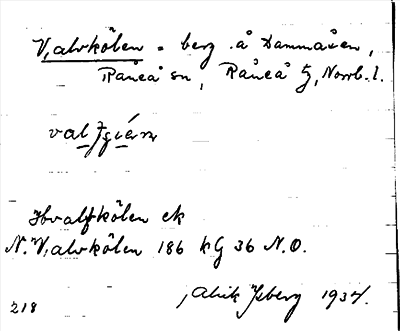 V,alvkölen = berg å Dammåsen,
Råneå sn, Råneå tg, Norrb. l.
Hvalfkölen ek
N. V,alvkölen 186 kG 36 N.O.
218 Alrik Ysberg 1934.